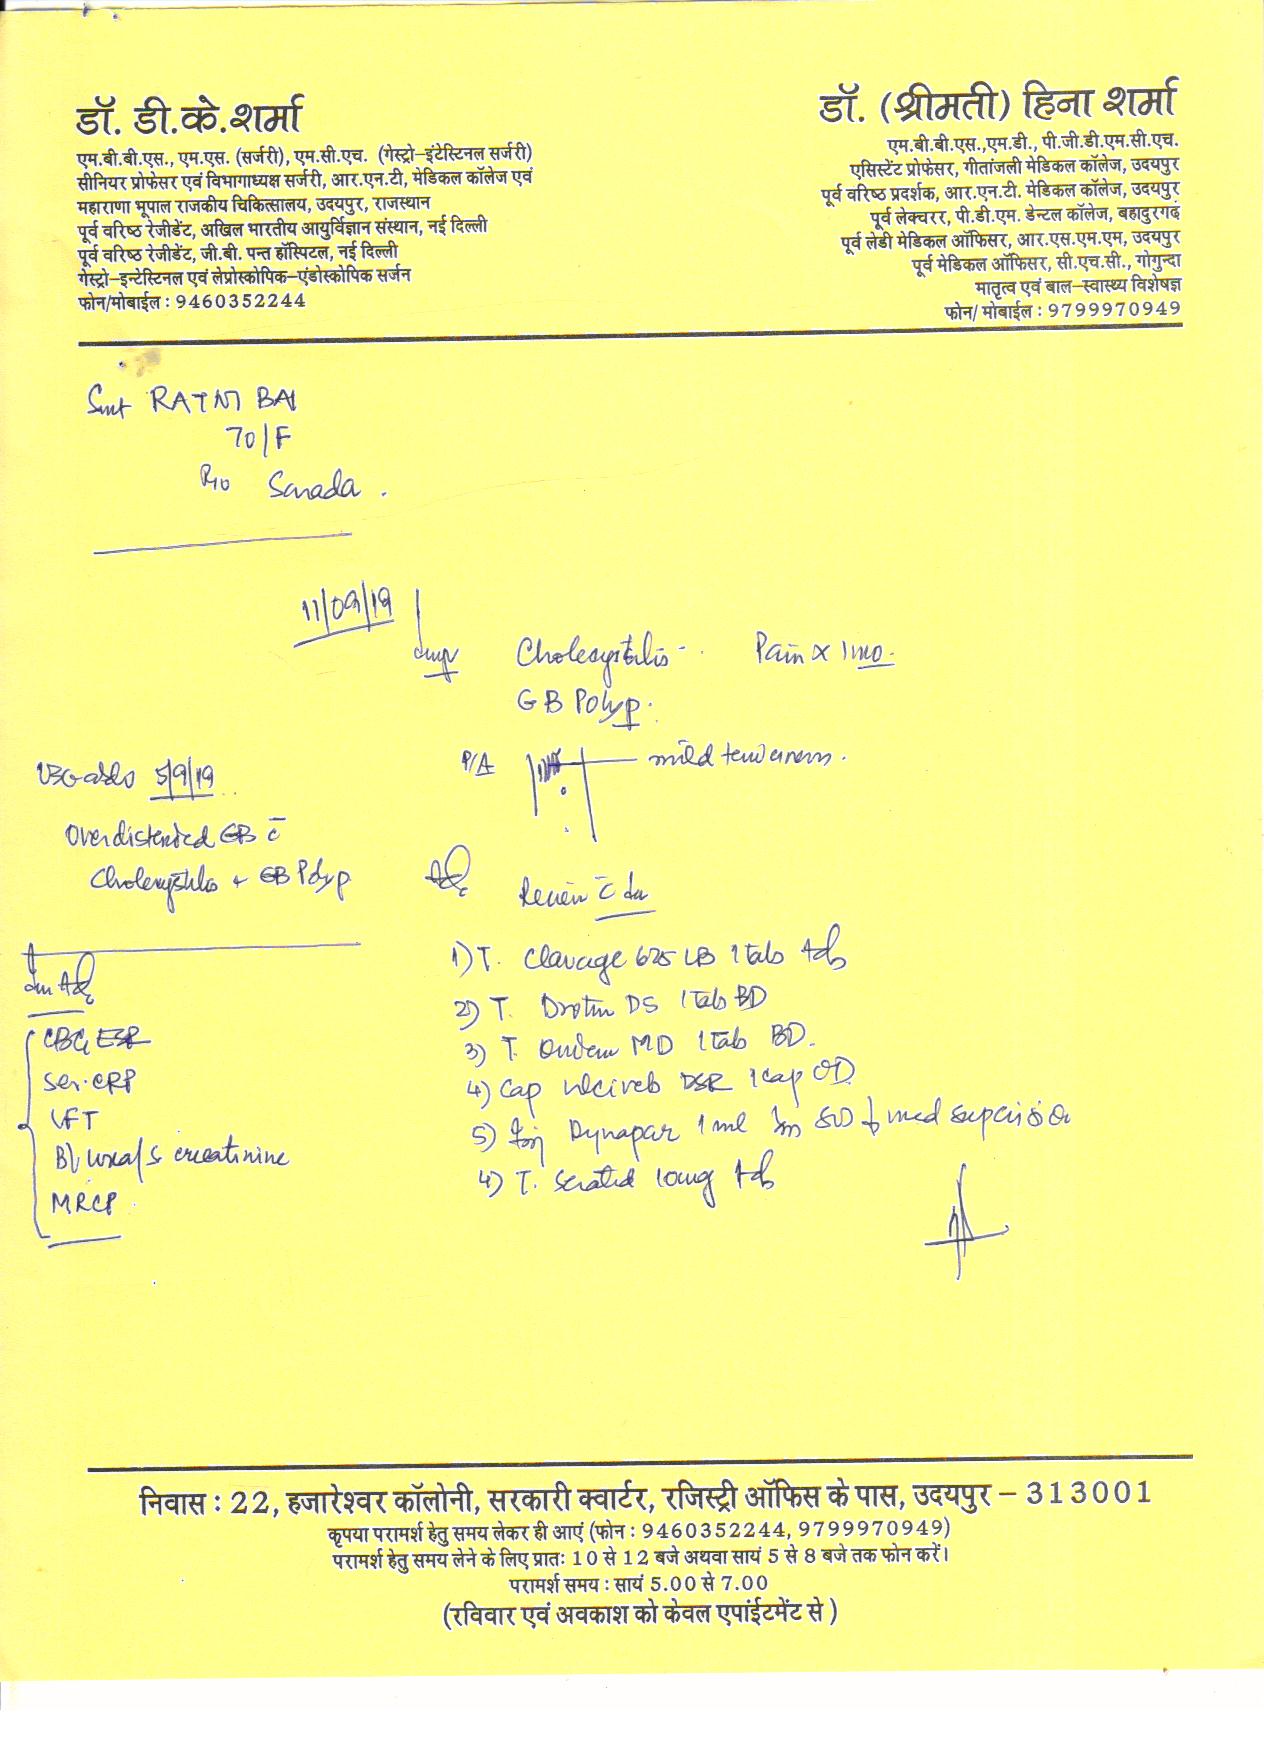 डॉ. डी.के.शर्मा
एम.बी.बी.एस., एम.एस. (सर्जरी), एम.सी.एच. (गेस्ट्रो-इंटेस्टिनल सर्जरी)
सीनियर प्रोफेसर एवं विभागाध्यक्ष सर्जरी, आर.एन.टी, मेडिकल कॉलेज एवं
महाराणा भूपाल राजकीय चिकित्सालय, उदयपुर, राजस्थान
पूर्व वरिष्ठ रेजीडेंट, अखिल भारतीय आयुर्विज्ञान संस्थान, नई दिल्ली
पूर्व वरिष्ठ रेजीडेंट, जी.बी. पन्त हॉस्पिटल, नई दिल्ली
गेस्ट्रो-इन्टेस्टिनल एवं लेप्रोस्कोपिक-एंडोस्कोपिक सर्जन
फोन/मोबाईल : 9460352244
डॉ. (श्रीमती) हिना शर्मा
एम.बी.बी.एस.,एम.डी., पी.जी.डी.एम.सी.एच.
एसिस्टेंट प्रोफेसर, गीतांजली मेडिकल कॉलेज, उदयपुर
पूर्व वरिष्ठ प्रदर्शक, आर.एन.टी. मेडिकल कॉलेज, उदयपुर
पूर्व लेक्चरर, पी.डी.एम. डेन्टल कॉलेज, बहादुरगढ़
पूर्व लेडी मेडिकल ऑफिसर, आर.एस.एम.एम, उदयपुर
पूर्व मेडिकल ऑफिसर, सी.एच.सी., गोगुन्दा
मातृत्व एवं बाल-स्वास्थ्य विशेषज्ञ
फोन/ मोबाईल : 9799970949
Smt RATNI BAI
70/F
R/o Sarada.
11/09/19
Cholecystitis Pain x 1 mo.
GB Polyp.
P/A mild tenderness.
USG abdo 5/9/19
Overdistended GB c̄
Cholecystitis + GB Polyp
Adv Review c̄
1) T. Clavage 625 LB 1 tab tds
2) T. Drotin DS 1 Tab BD
3) T. Ondem MD 1 tab BD.
4) Cap DSR 1 cap OD
5) Inj Dynapar 1 ml Im med supervision
4) T. 10mg tds
Adv
CBC, ESR
Ser. CRP
LFT
Bl. urea/S. creatinine
MRCP
निवास : 22, हजारेश्वर कॉलोनी, सरकारी क्वार्टर, रजिस्ट्री ऑफिस के पास, उदयपुर - 313001
कृपया परामर्श हेतु समय लेकर ही आएं (फोन : 9460352244, 9799970949)
परामर्श हेतु समय लेने के लिए प्रातः 10 से 12 बजे अथवा सायं 5 से 8 बजे तक फोन करें।
परामर्श समय : सायं 5.00 से 7.00
(रविवार एवं अवकाश को केवल एपांईटमेंट से )